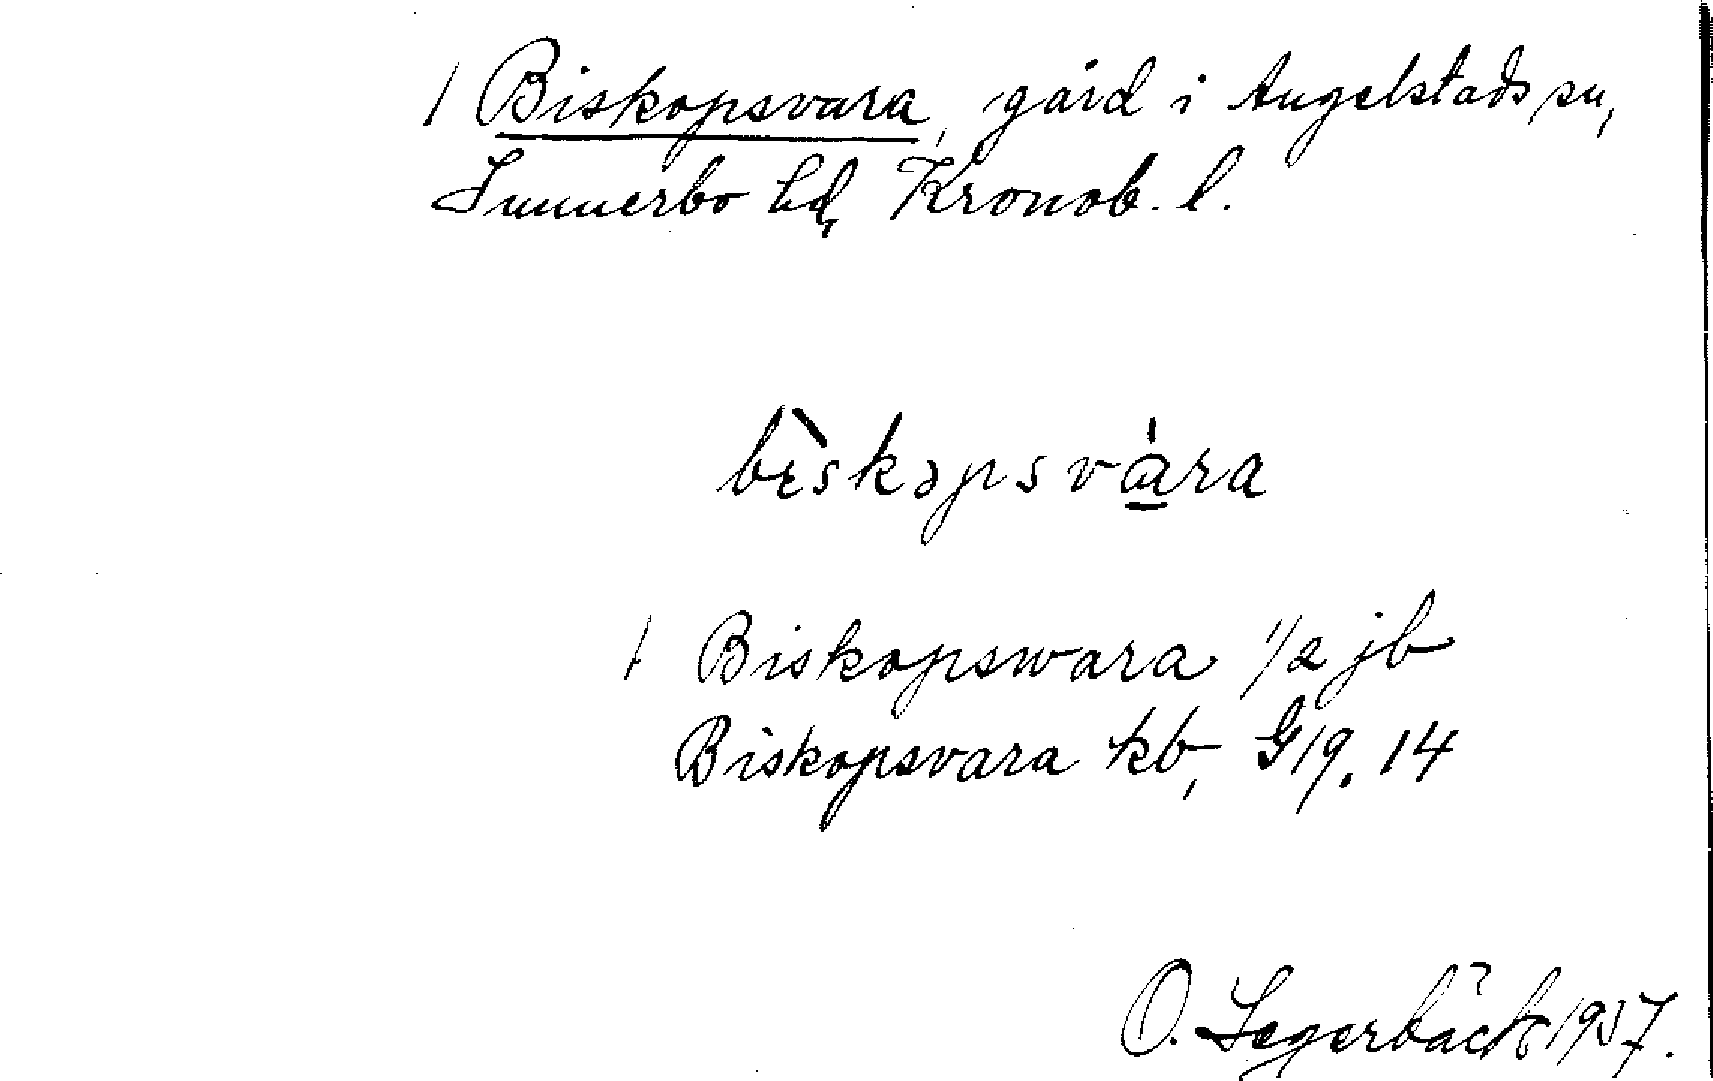 / Biskopsvara, gård i Angelstads sn,
Sunnerbo hd, Kronob. l.
bìskəpsvàra
/ Biskopswara 1/2 jb
Biskopsvara kb, G 19. 14
O. Segerbäck 1937.